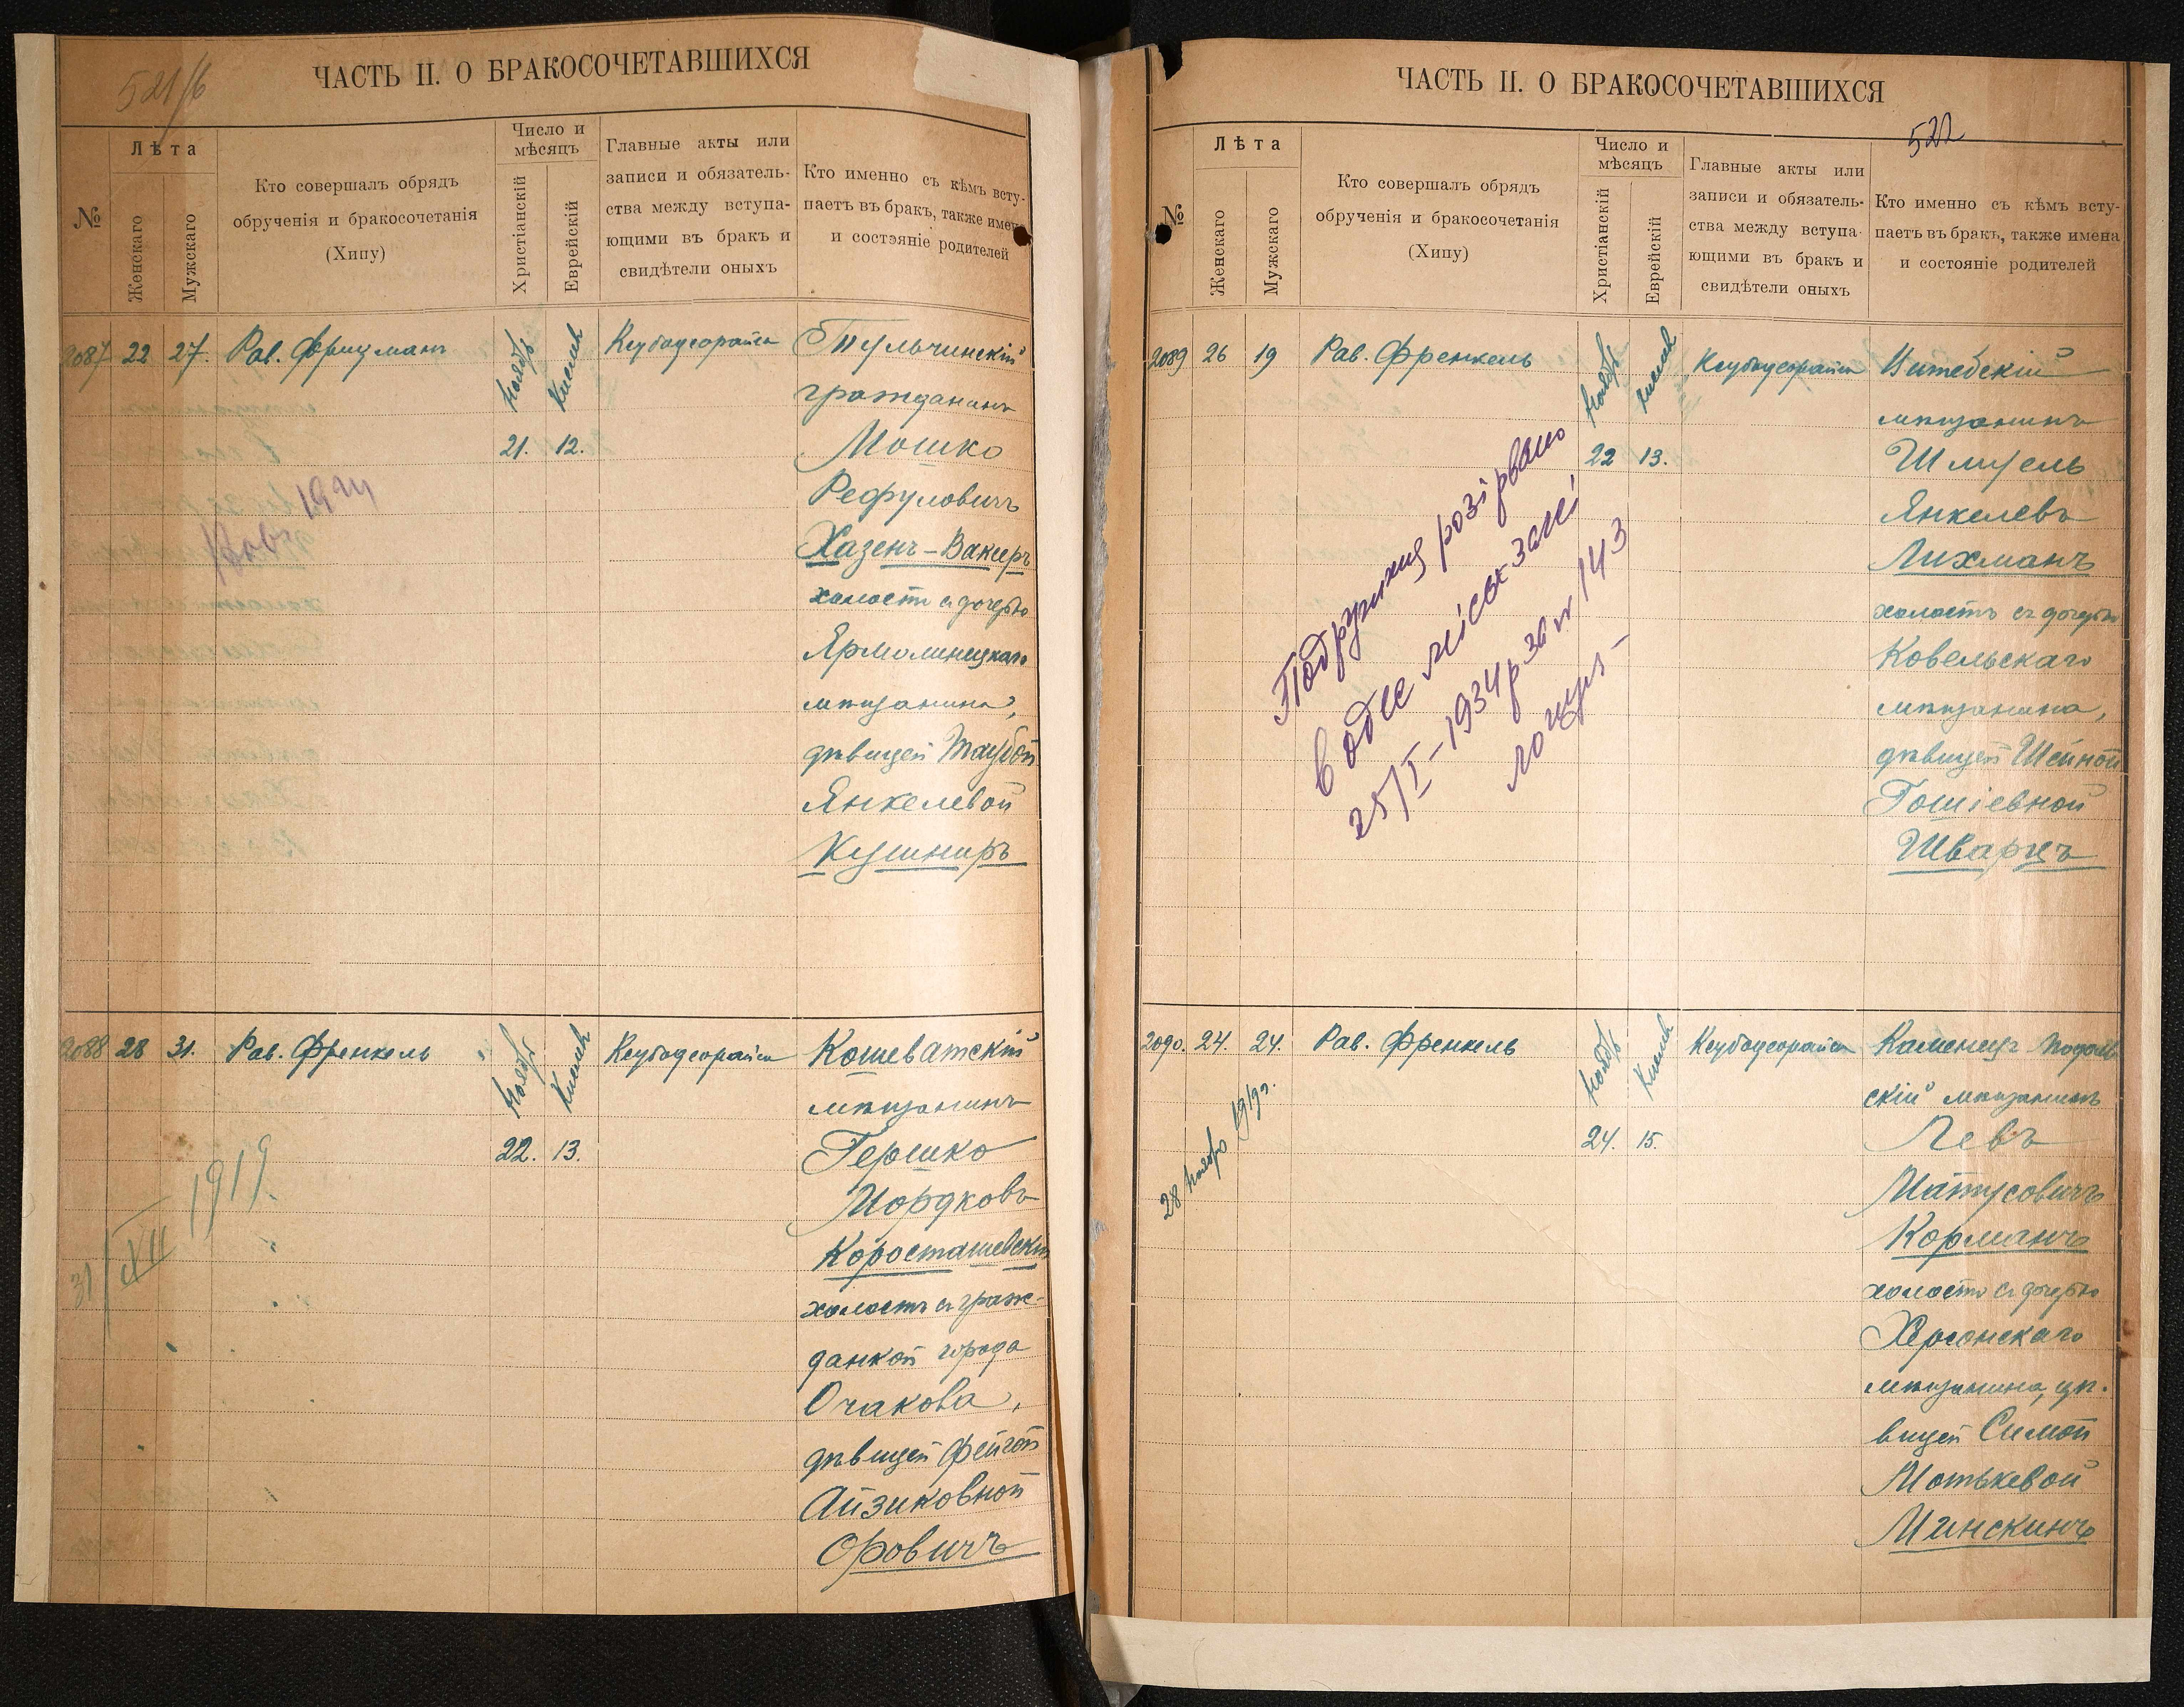 521/б
ЧАСТЬ II. О БРАКОСОЧЕТАВШИХСЯ
№
Лѣта
Женскаго
Мужскаго
Кто совершалъ обрядъ
обрученія и бракосочетанія
(Хипу)
Число и
мѣсяцъ
Христіанскій
Еврейскій
Главные акты или
записи и обязатель-
ства между вступа-
ющими въ бракъ и
свидѣтели оныхъ
Кто именно съ кѣмъ всту-
паетъ въ бракъ, также имена
и состояніе родителей
2087 22 27. Рав. Ноябрь Кислев Ксубадеорайса Тульчинскій
гражданинъ
21. 12. Мошко
Рефуловичъ
1924
Хазенъ-Вакеръ
холостъ съ дочерью
Ярмолинецкаго
мѣщанина,
дѣвицей Таубой
Янкелевой
Кушниръ
2088 28 31. Рав. Френкель Ноябрь Кислев Ксубадеорайса Кошеватскій
мѣщанинъ
22. 13. Гершко
Мордковъ
Коросташевскій
31/XII 1919.
холостъ съ граж-
данкой города
Очакова,
дѣвицей Фейгой
Айзиковной
Оровичъ
ЧАСТЬ II. О БРАКОСОЧЕТАВШИХСЯ
522
№
Лѣта
Женскаго
Мужскаго
Кто совершалъ обрядъ
обрученія и бракосочетанія
(Хипу)
Число и
мѣсяцъ
Христіанскій
Еврейскій
Главные акты или
записи и обязатель-
ства между вступа-
ющими въ бракъ и
свидѣтели оныхъ
Кто именно съ кѣмъ всту-
паетъ въ бракъ, также имена
и состояніе родителей
2089 26 19 Рав. Френкель Ноябрь Кислев Ксубадеорайса Витебскій
мѣщанинъ
22 13. Шмуель
Янкелевъ
Лихманъ
холостъ съ дочерью
Ковельскаго
мѣщанина,
дѣвицей Шейной
Гошіевной
Шварцъ
Подружжя розірвано
в Одес міськ загсі
25/I-1934р за № 143
2090. 24. 24. Рав. Френкель Ноябрь Кислев Ксубадеорайса Каменецъ Подоль
скій мѣщанинъ
24. 15. Левъ
Матусовичъ
Корманъ
28 Ноября 1919г.
холостъ съ дочерью
Херсонскаго
мѣщанина, дѣ-
вицей Симой
Мотькевой
Минскинъ